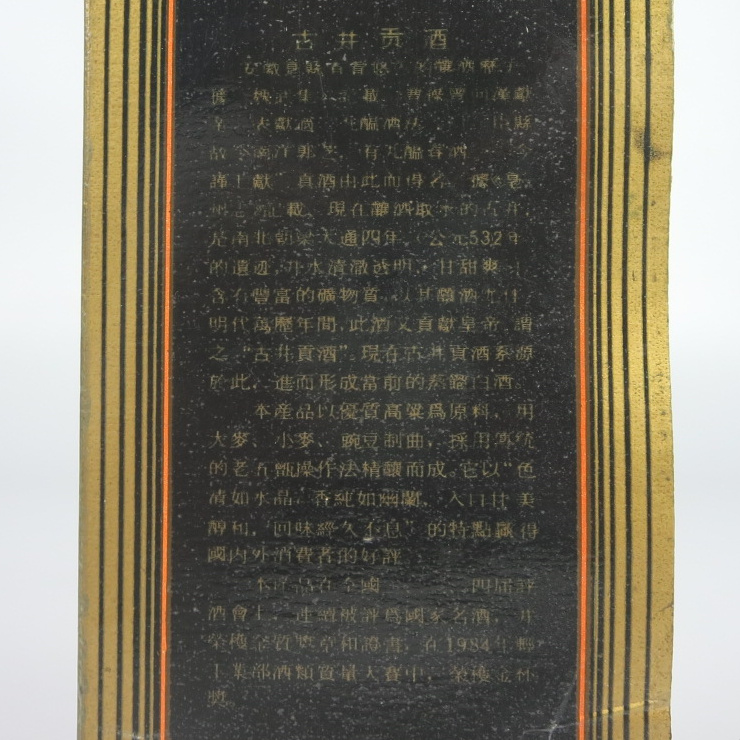 古井貢酒
安徽亳縣有着悠 的釀酒歷史
據 魏武集 記載 曹操曾向漢獻
帝 上獻過 九醞酒法
故令南陽郭芝 有九醞春酒 今
謹上獻 貢酒由此而得名 據 亳
州志 記載 現在釀酒取水的古井
是南北朝梁大通四年 (公元532年
的遺迹 井水清澈透明 甘甜爽
含有豐富的礦物質 以其釀酒尤佳
明代萬歷年間,此酒又貢獻皇帝 謂
之 “古井貢酒”。現在古井貢酒系源
於此, 進而形成當前的蒸餾白酒。
本産品以優質高粱爲原料, 用
大麥、小麥、豌豆制曲, 採用傳統
的老五甑操作法精釀而成。它以“色
清如水晶, 香純如幽蘭, 入口甘美
醇和, 回味經久不息” 的特點贏得
國内外消費者的好評。
本産品在全國 四屆評
酒會上, 連續被評爲國家名酒, 并
榮獲金質獎章和證書, 在1984年輕
工業部酒類質量大賽中, 榮獲金杯
獎。